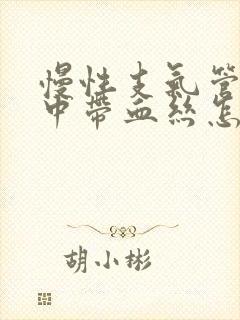 慢性支氣管
中帶血絲怎
胡小彬